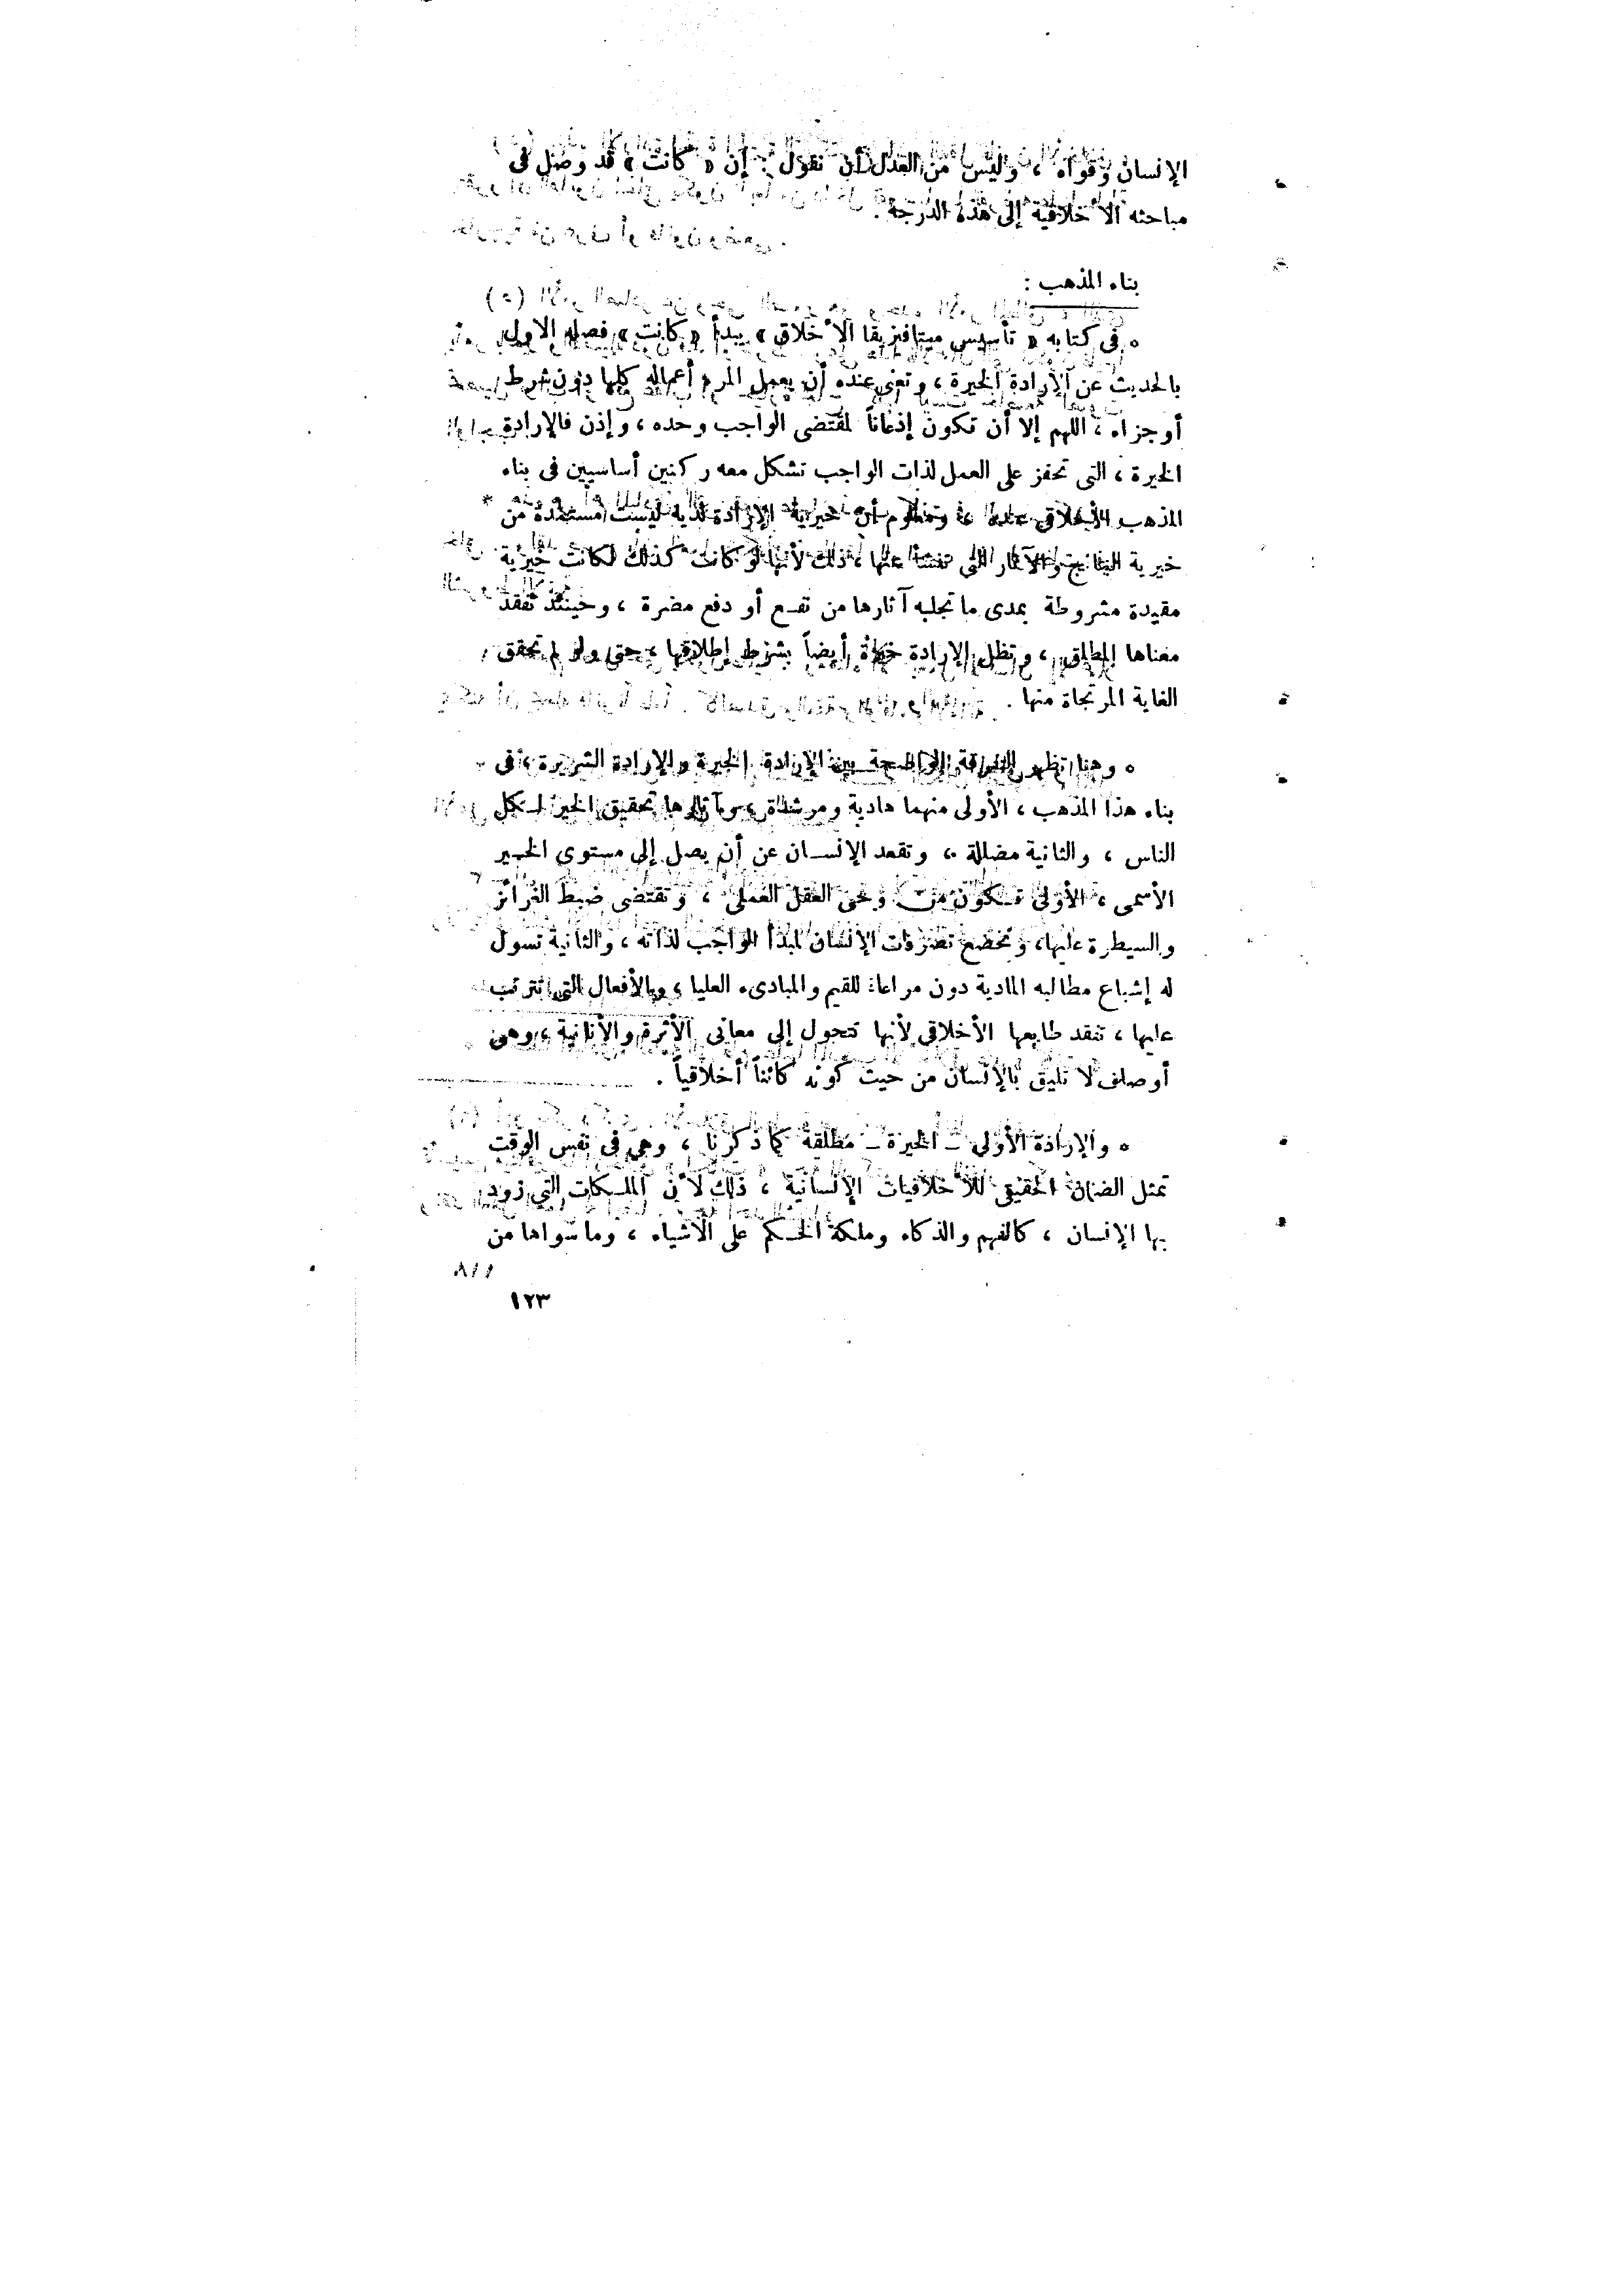 الإنسان وقواه ، وليس من العدل أن نقول : إن « كانت » قد وصل فى
مباحثه الأخلاقية إلى هذه الدرجة .
بناء المذهب :
٥ فى كتابه « تأسيس ميتافيزيقا الأخلاق » يبدأ « كانت » فصله الأول
بالحديث عن الإرادة الخيرة ، وتعنى عنده أن يعمل المرء أعماله كلها دون شرط
أو جزاء ، اللهم إلا أن تكون إذعاناً لمقتضى الواجب وحده ، وإذن فالإرادة
الخيرة ، التى تحفز على العمل لذات الواجب تشكل معه ركنين أساسيين فى بناء
المذهب الأخلاقى عنده ، ومعلوم أن خيرية الإرادة لديه ليست مستمدة من
خيرية النتائج والآثار التى تنشأ عنها ، ذلك لأنها لو كانت كذلك لكانت خيرية
مقيدة مشروطة بمدى ما تجلبه آثارها من نفع أو دفع مضرة ، وحينئذ تفقد
معناها المطلق ، وتظل الإرادة خيرة أيضاً بشرط إطلاقها ، حتى ولو لم تحقق
الغاية المرتجاة منها .
٥ وهنا تظهر التفرقة الواضحة بين الإرادة الخيرة والإرادة الشريرة ، فى
بناء هذا المذهب ، الأولى منهما هادية ومرشدة ، ومآثرها تحقيق الخير لكل
الناس ، والثانية مضللة ، وتقعد الإنسان عن أن يصل إلى مستوى الخير
الأسمى ، الأولى تكون من وحى العقل العملى ، وتقتضى ضبط الغرائز
والسيطرة عليها ، وتخضع تصرفات الإنسان لمبدأ الواجب لذاته ، والثانية تسول
له إشباع مطالبه المادية دون مراعاة للقيم والمبادىء العليا ، والأفعال التى تترتب
عليها ، تفقد طابعها الأخلاقى لأنها تتحول إلى معانى الأثرة والأنانية ، وهى
أوصاف لا تليق بالإنسان من حيث كونه كائناً أخلاقياً .
٥ والإرادة الأولى – الخيرة – مطلقة كما ذكرنا ، وهى فى نفس الوقت
تمثل الضمان الحقيقى للأخلاقيات الإنسانية ، ذلك لأن الملكات التى زود
بها الإنسان ، كالفهم والذكاء وملكة الحكم على الأشياء ، وما سواها من
١٢٣